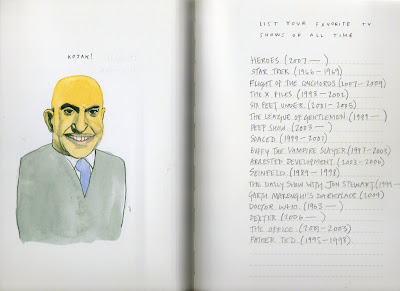 KOJAK!
LIST YOUR FAVORITE TV
SHOWS OF ALL TIME
HEROES. (2007 — )
STAR TREK (1966 – 1969)
FLIGHT OF THE CONCHORDS (2007 – 2009)
THE X FILES. (1993 – 2002)
SIX FEET UNDER. (2001 – 2005)
THE LEAGUE OF GENTLEMEN (1999 — )
PEEP SHOW. (2003 — )
SPACED (1999 – 2001)
BUFFY THE VAMPIRE SLAYER (1997 – 2003)
ARRESTED DEVELOPMENT. (2003 – 2006)
SEINFELD. (1989 – 1998)
THE DAILY SHOW WITH JON STEWART. (1999 —
GARTH MARENGHI'S DARKPLACE (2004)
DOCTOR WHO. (1963 — )
DEXTER (2006 — )
THE OFFICE. (2001 – 2003)
FATHER TED. (1995 – 1998)